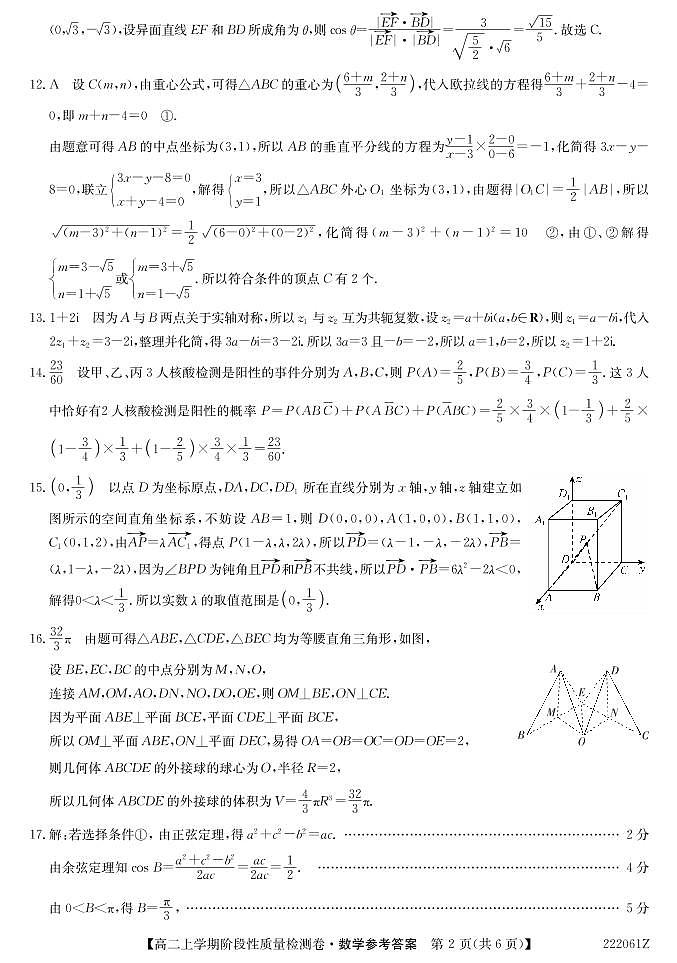 (0,√3,-√3),设异面直线 EF 和 BD 所成角为 θ,则 cos θ=|EF→·BD→|/(|EF→|·|BD→|)=3/(√(5/2)·√6)=√15/5.故选 C.
12. A 设 C(m,n),由重心公式,可得△ABC 的重心为((6+m)/3,(2+n)/3),代入欧拉线的方程得(6+m)/3+(2+n)/3-4=
0,即 m+n-4=0 ①.
由题意可得 AB 的中点坐标为(3,1),所以 AB 的垂直平分线的方程为(y-1)/(x-3)×(2-0)/(0-6)=-1,化简得 3x-y-
8=0,联立{3x-y-8=0 x+y-4=0,解得{x=3, y=1,所以△ABC 外心 O₁ 坐标为(3,1),由题得|O₁C|=1/2|AB|,所以
√((m-3)²+(n-1)²)=1/2√((6-0)²+(0-2)²),化简得(m-3)²+(n-1)²=10 ②,由①、②解得
{m=3-√5 n=1+√5或{m=3+√5 n=1-√5.所以符合条件的顶点 C 有 2 个.
13. 1+2i 因为 A 与 B 两点关于实轴对称,所以 z₁ 与 z₂ 互为共轭复数,设 z₂=a+bi(a,b∈R),则 z₁=a-bi,代入
2z₁+z₂=3-2i,整理并化简,得 3a-bi=3-2i.所以 3a=3 且-b=-2,所以 a=1,b=2,所以 z₂=1+2i.
14. 23/60 设甲、乙、丙 3 人核酸检测是阳性的事件分别为 A,B,C,则 P(A)=2/5,P(B)=3/4,P(C)=1/3.这 3 人
中恰好有2 人核酸检测是阳性的概率 P=P(ABC̅)+P(AB̅C)+P(A̅BC)=2/5×3/4×(1-1/3)+2/5×
(1-3/4)×1/3+(1-2/5)×3/4×1/3=23/60.
15. (0,1/3) 以点 D 为坐标原点,DA,DC,DD₁ 所在直线分别为 x 轴,y 轴,z 轴建立如
图所示的空间直角坐标系,不妨设 AB=1,则 D(0,0,0),A(1,0,0),B(1,1,0),
C₁(0,1,2),由AP→=λAC₁→,得点 P(1-λ,λ,2λ),所以PD→=(λ-1,-λ,-2λ),PB→=
(λ,1-λ,-2λ),因为∠BPD 为钝角且PD→和PB→不共线,所以PD→·PB→=6λ²-2λ<0,
解得0<λ<1/3.所以实数 λ 的取值范围是(0,1/3).
z
D₁ C₁
A₁ B₁
P
D C y
A B
x
16. 32/3π 由题可得△ABE,△CDE,△BEC 均为等腰直角三角形,如图,
设 BE,EC,BC 的中点分别为 M,N,O,
连接 AM,OM,AO,DN,NO,DO,OE,则 OM⊥BE,ON⊥CE.
因为平面 ABE⊥平面 BCE,平面 CDE⊥平面 BCE,
所以 OM⊥平面 ABE,ON⊥平面 DEC,易得 OA=OB=OC=OD=OE=2,
则几何体 ABCDE 的外接球的球心为 O,半径 R=2,
所以几何体 ABCDE 的外接球的体积为 V=4/3πR³=32/3π.
A D
E
M N
B O C
17. 解:若选择条件①,由正弦定理,得 a²+c²-b²=ac. …… 2 分
由余弦定理知 cos B=(a²+c²-b²)/2ac=ac/2ac=1/2. …… 4 分
由 0<B<π,得 B=π/3, …… 5 分
【高二上学期阶段性质量检测卷·数学参考答案 第 2 页(共 6 页)】 222061Z